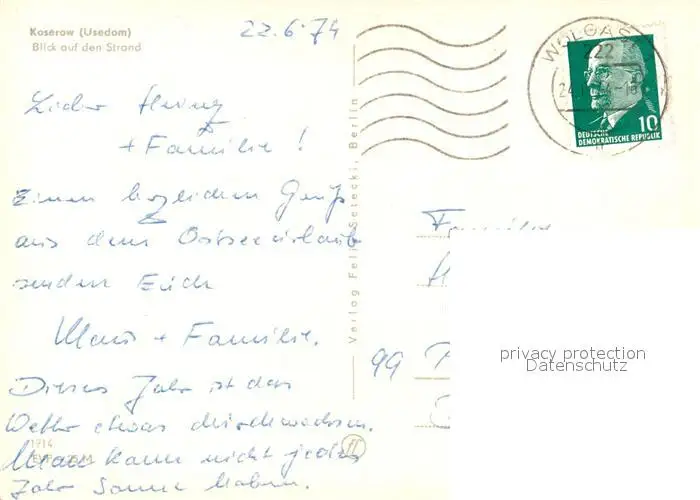 Koserow (Usedom)
Blick auf den Strand
22.6.74
Lieber Heinz
+ Familie!
Einen herzlichen Gruß
aus dem Ostseeurlaub
senden Euch
Klaus + Familie.
Dieses Jahr ist das
Wetter etwas durchwachsen.
Man kann nicht jedes
Jahr Sonne haben.
1914
Verlag Felix Setecki, Berlin
WOLGAST
222
10
DEUTSCHE
DEMOKRATISCHE REPUBLIK
Familie
H
99 P
privacy protection
Datenschutz